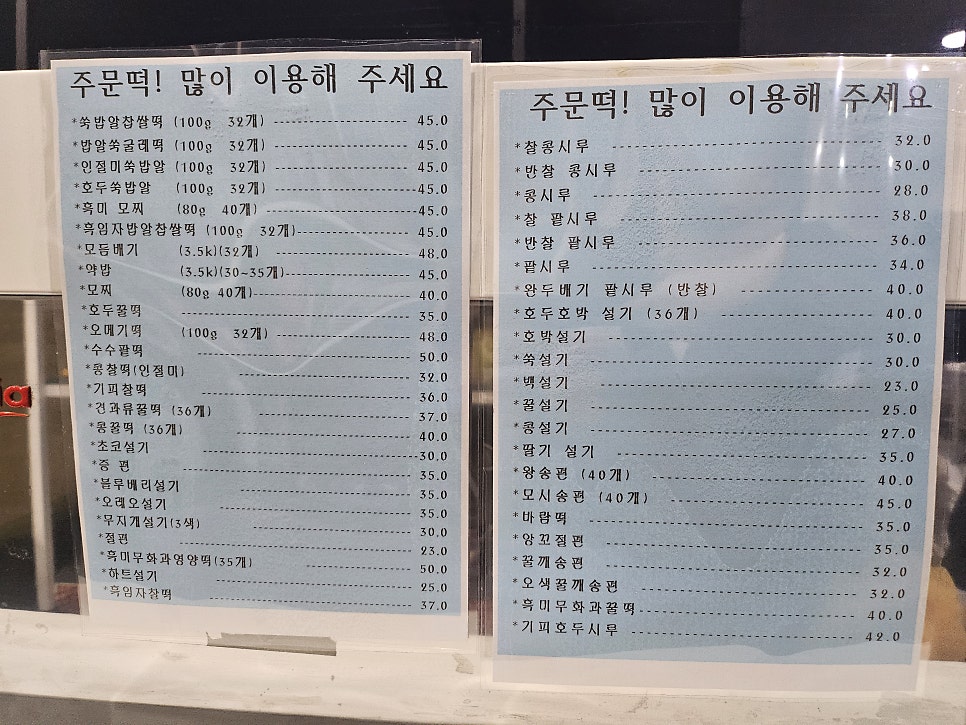 주문떡! 많이 이용해 주세요
*쑥밥알찹쌀떡 (100g 32개) 45.0
*밥알쑥굴레떡 (100g 32개) 45.0
*인절미쑥밥알 (100g 32개) 45.0
*호두쑥밥알 (100g 32개) 45.0
*흑미 모찌 (80g 40개) 45.0
*흑임자밥알찹쌀떡 (100g 32개) 45.0
*모듬배기 (3.5k)(32개) 48.0
*약밥 (3.5k)(30~35개) 45.0
*모찌 (80g 40개) 40.0
*호두꿀떡 35.0
*오메기떡 (100g 32개) 48.0
*수수팥떡 50.0
*콩찰떡(인절미) 32.0
*기피찰떡 36.0
*견과류꿀떡 (36개) 37.0
*콩꿀떡 (36개) 40.0
*초코설기 30.0
*증 편 35.0
*블루베리설기 35.0
*오레오설기 35.0
*무지개설기(3색) 30.0
*절편 23.0
*흑미무화과영양떡(35개) 50.0
*하트설기 25.0
*흑임자찰떡 37.0
주문떡! 많이 이용해 주세요
*찰콩시루 32.0
*반찰 콩시루 30.0
*콩시루 28.0
*찰 팥시루 38.0
*반찰 팥시루 36.0
*팥시루 34.0
*완두배기 팥시루 (반찰) 40.0
*호두호박 설기 (36개) 40.0
*호박설기 30.0
*쑥설기 30.0
*백설기 23.0
*꿀설기 25.0
*콩설기 27.0
*딸기 설기 35.0
*왕송편 (40개) 40.0
*모시송편 (40개) 45.0
*바람떡 35.0
*앙꼬절편 35.0
*꿀깨송편 32.0
*오색꿀깨송편 32.0
*흑미무화과꿀떡 40.0
*기피호두시루 42.0